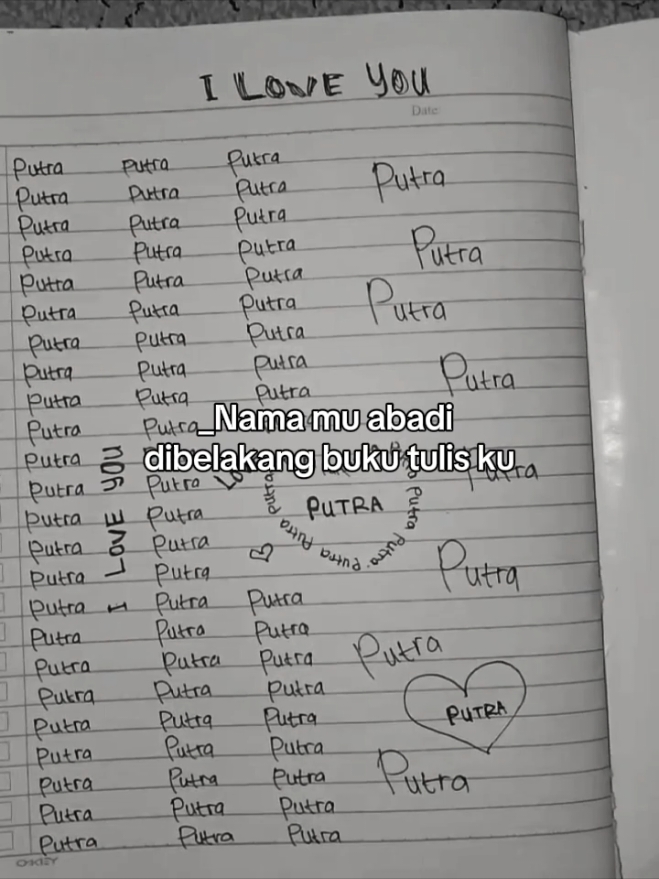 I LOVE YOU
Date:
Putra Putra Putra
Putra
Putra Putra Putra
Putra Putra Putra
Putra Putra Putra
Putra
Putra Putra Putra
Putra Putra Putra
Putra
Putra Putra Putra
Putra Putra Putra
Putra
Putra Putra Putra
Putra Putra
_Nama mu abadi
dibelakang buku tulis ku
Putra
Putra Putra
Putra
I LOVE YOU
PUTRA
Putra Putra Putra Putra Putra Putra
Putra Putra
Putra Putra
Putra Putra
Putra
Putra Putra Putra
Putra Putra Putra
Putra
Putra Putra Putra
Putra Putra Putra
PUTRA
Putra Putra Putra
Putra Putra Putra
Putra
Putra Putra Putra
Putra Putra Putra
Putra Putra Putra
OKEY